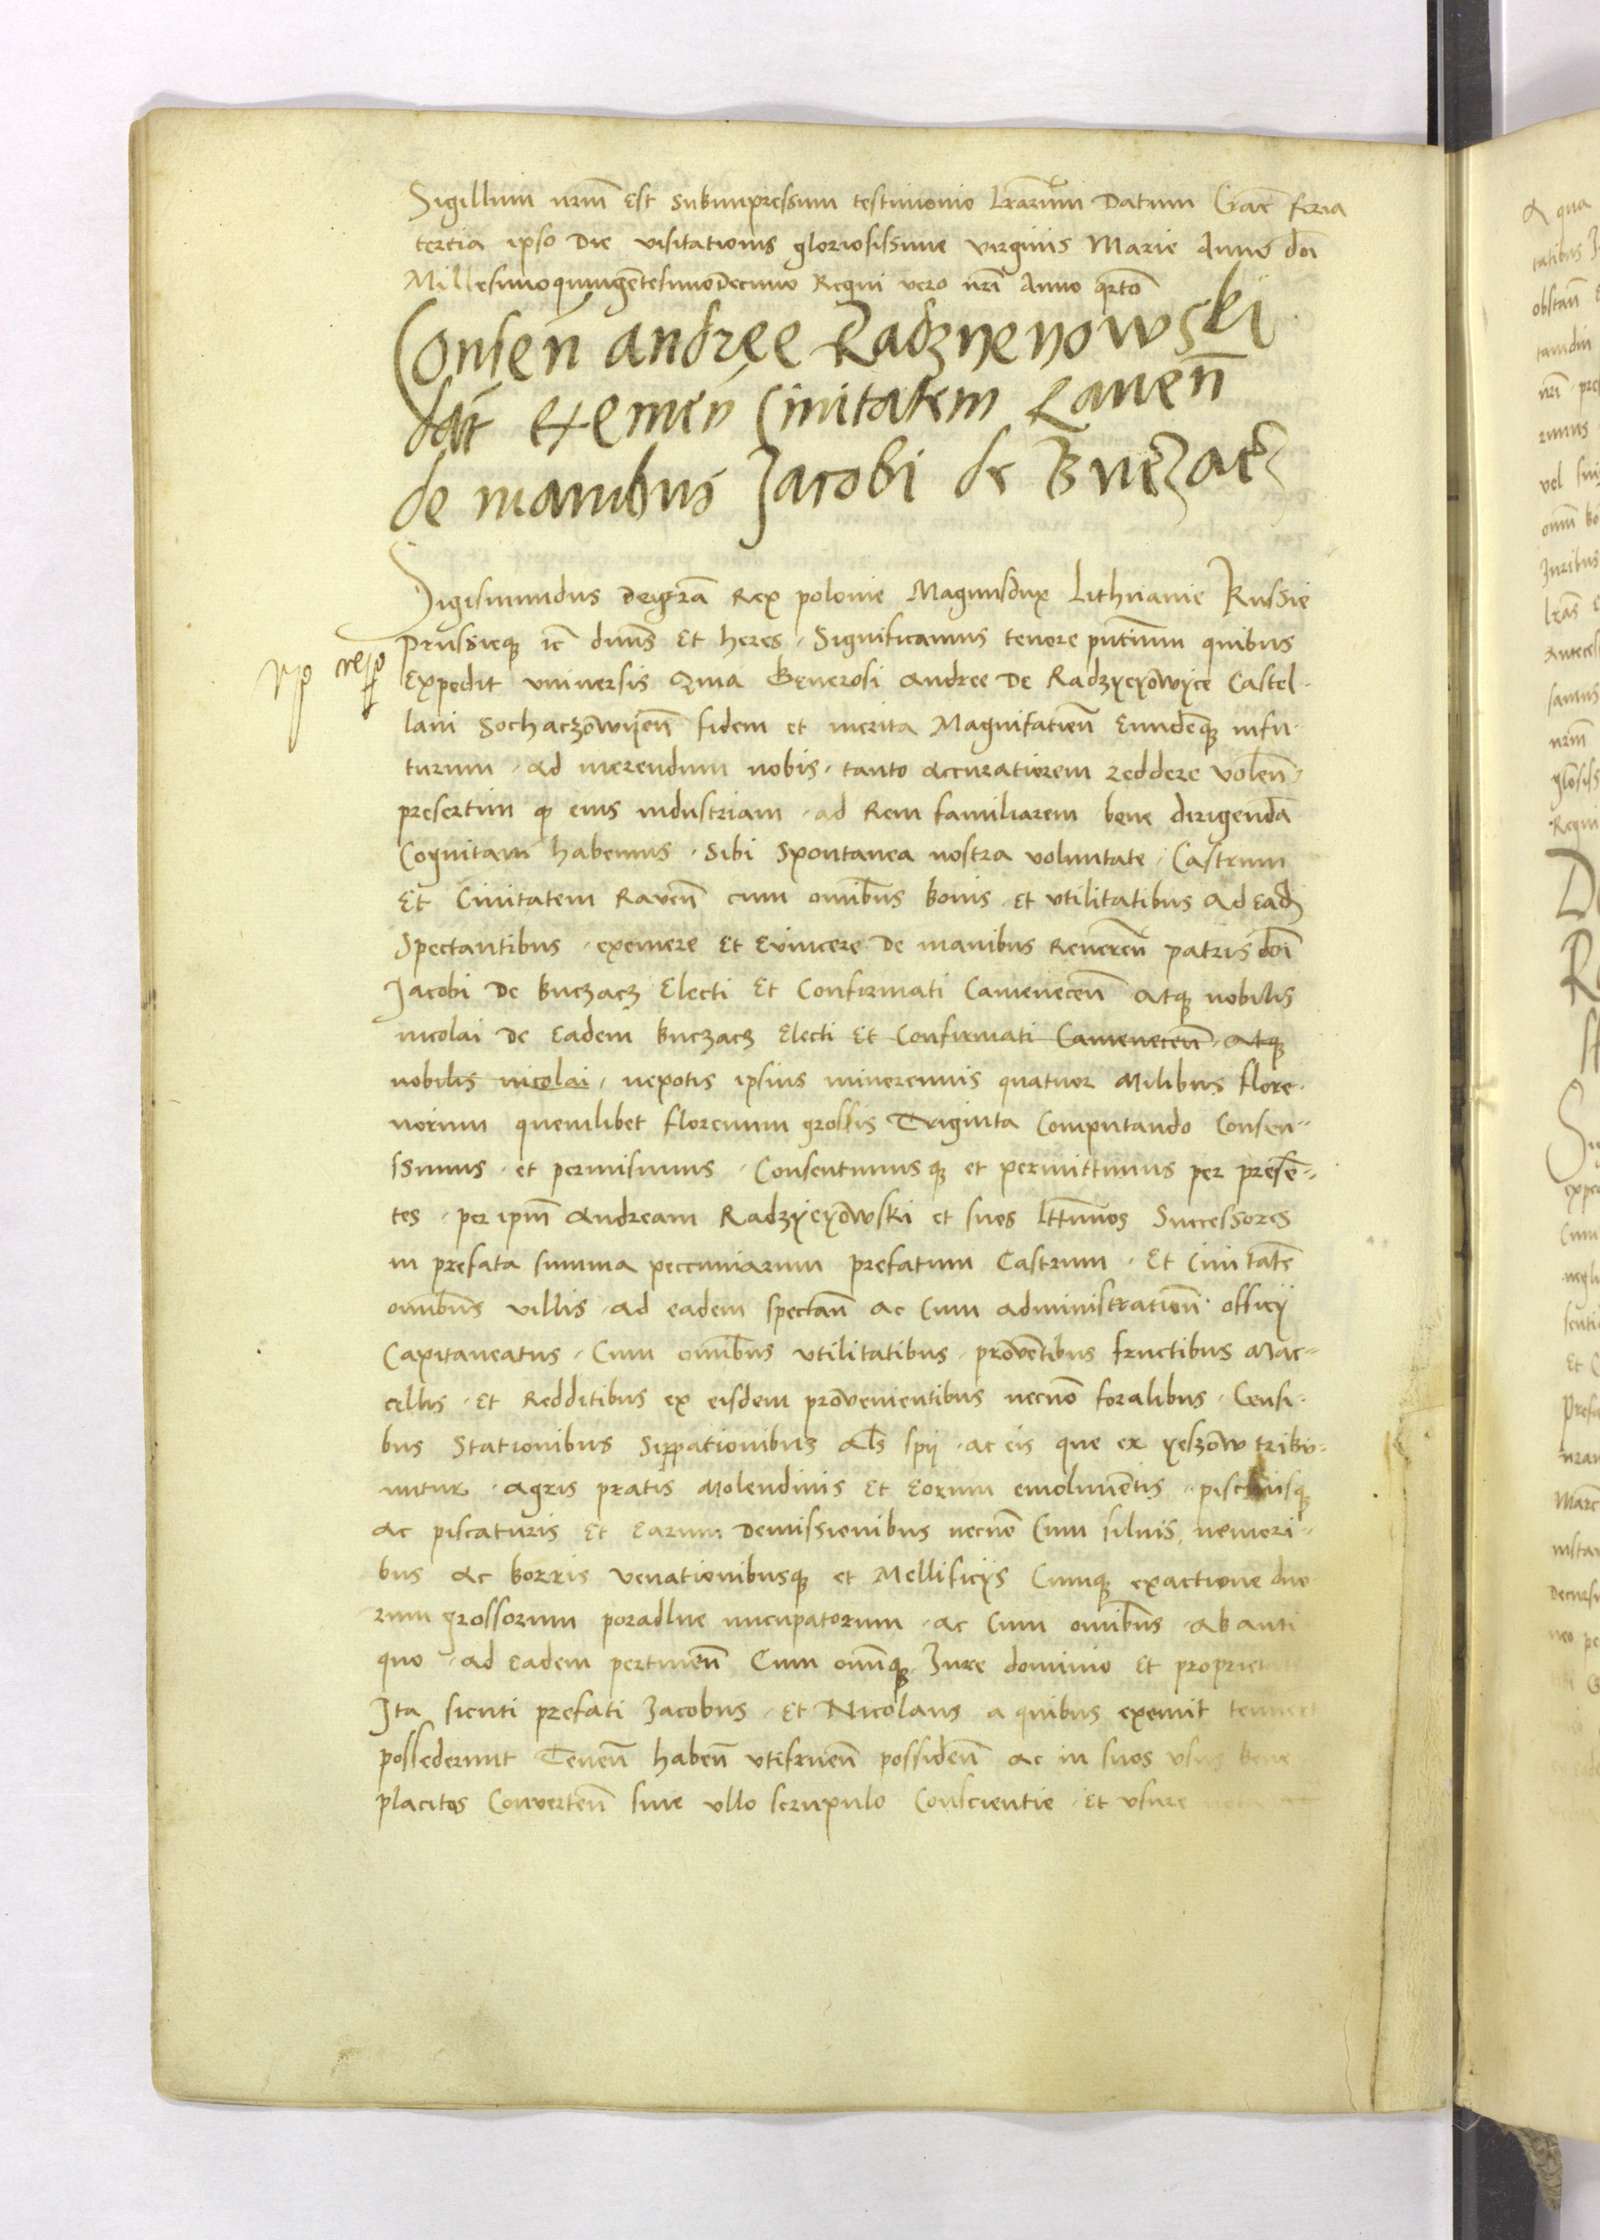 Sigillum nrm̄ est subimpressum testimonio lrarum Datum Crac̄ feria
tertia ipso Die visitationis gloriosissime virginis Marie Anno don̄i
MillesimoquingētesimoDecimo Regni vero nrī Anno q̄rto
Consen̄ andree Radzyeyowski
dat̄ exemēn Civitatem Raven̄
de manibus Jacobi de Buczacz
Sigismundus Deigrā Rex polonie Magnusdux Lithuanie Russie
Prussieq̨ ic̄ dnus̄ et heres · Significamus tenore pn̄tium quibus
Expedit universis Quia Generosi Andree De Radzyeyōwyce Castel-
lani Sochaczōwyen̄ fidem et merita Magnifatien̄ Eundēq̨ infu-
turum · ad merendum nobis · tanto accuratiorem reddere volen̄
presertim q̨ eius industriam · ad Rem familiarem bene dirigendā
Cognitam habemus · Sibi Spontanea nostra voluntate · Castrum
Et Civitatem Raven̄ cum omnibus bonis et utilitatibus ad eadz
Spectantibus · exemere et Evincere De manibus Reveren̄ patris don̄i
Jacobi De Buczacz Electi Et Confirmati Camenecen̄ atq̨ nobilis
nicolai De Eadem Buczacz Electi Et Confirmati Camenecen̄ · atq̨
nobilis nicolai · nepotis ipsius minorennis quatuor Milibus flore-
norum quemlibet florenum grossis Triginta Computando Consen-
ssimus · et permisimus · Consentimusq̨ et permittimus per presē-
tes · per ipm̄ Andream Radzyeyōwski et suos lt̄timos Successores
in prefata summa peccuniarum prefatum Castrum · Et Civitatē
omnibus villis · ad eadem spectan̄ ac Cum administration̄ officij
Capitaneatus · Cum omnibus utilitatibus · provētibus fructibus Mac-
cellis · et Redditibus ex eisdem provenientibus necnō foralibus · Censi-
bus Stationibus Sippationibus als̄ spij · ac eis que ex yeszōw tribu-
untur · agris pratis Molendinis Et Eorum emolumētis · piscinisq̨
ac piscaturis Et Earum Demissionibus necnō Cum silvis, nemori-
bus ac borris venationibusq̨ et Mellificijs Cumq̨ exactione duo
rum grossorum poradlne nuncupatorum · ac Cum omnibus · ab anti
quo · ad Eadem pertinen̄ Cum omniq̨ Jure dominio Et propriet
Ita sicuti prefati Jacobus · Et Nicolaus a quibus exemit tenuert
possederunt Tenen̄ haben̄ utifruen̄ possiden̄ ac in suos usus bene
placitos Converten̄ sine ullo scrupulo Conscientie · et usure